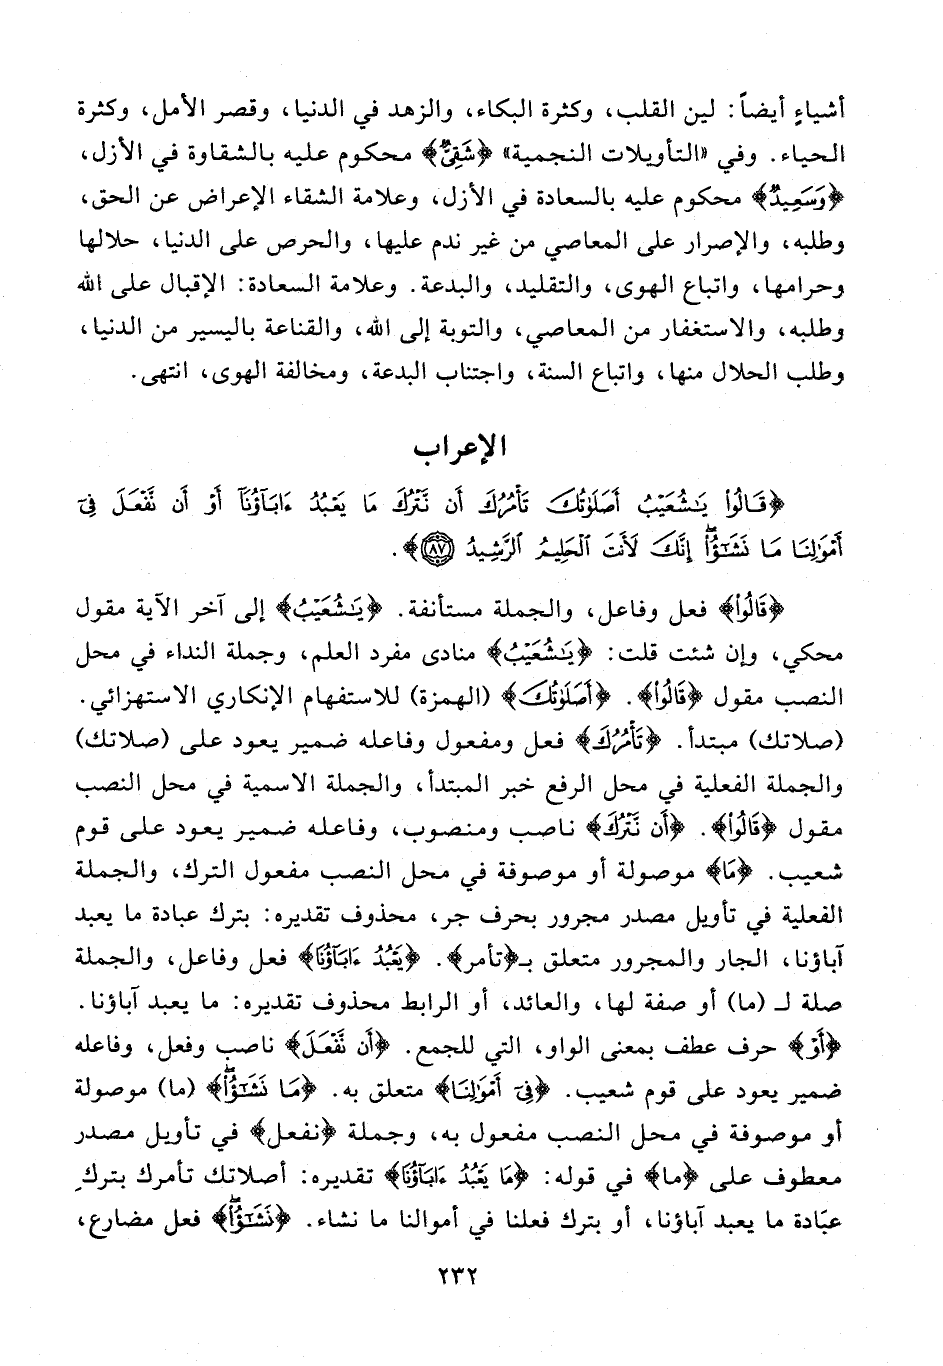 أشياءٍ أيضاً: لين القلب، وكثرة البكاء، والزهد في الدنيا، وقصر الأمل، وكثرة
الحياء. وفي «التأويلات النجمية» ﴿شَقِىٌّ﴾ محكوم عليه بالشقاوة في الأزل،
﴿وَسَعِيدٌ﴾ محكوم عليه بالسعادة في الأزل، وعلامة الشقاء الإعراض عن الحق،
وطلبه، والإصرار على المعاصي من غير ندم عليها، والحرص على الدنيا، حلالها
وحرامها، واتباع الهوى، والتقليد، والبدعة. وعلامة السعادة: الإقبال على الله
وطلبه، والاستغفار من المعاصي، والتوبة إلى الله، والقناعة باليسير من الدنيا،
وطلب الحلال منها، واتباع السنة، واجتناب البدعة، ومخالفة الهوى، انتهى.
الإعراب
﴿قَالُوا۟ يَٰشُعَيْبُ أَصَلَوٰتُكَ تَأْمُرُكَ أَن نَّتْرُكَ مَا يَعْبُدُ ءَابَآؤُنَآ أَوْ أَن نَّفْعَلَ فِىٓ
أَمْوَٰلِنَا مَا نَشَٰٓؤُا۟ ۖ إِنَّكَ لَأَنتَ ٱلْحَلِيمُ ٱلرَّشِيدُ ٨٧﴾.
﴿قَالُوا۟﴾ فعل وفاعل، والجملة مستأنفة. ﴿يَٰشُعَيْبُ﴾ إلى آخر الآية مقول
محكي، وإن شئت قلت: ﴿يَٰشُعَيْبُ﴾ منادى مفرد العلم، وجملة النداء في محل
النصب مقول ﴿قَالُوا۟﴾. ﴿أَصَلَوٰتُكَ﴾ (الهمزة) للاستفهام الإنكاري الاستهزائي.
(صلاتك) مبتدأ. ﴿تَأْمُرُكَ﴾ فعل ومفعول وفاعله ضمير يعود على (صلاتك)
والجملة الفعلية في محل الرفع خبر المبتدأ، والجملة الاسمية في محل النصب
مقول ﴿قَالُوا۟﴾. ﴿أَن نَّتْرُكَ﴾ ناصب ومنصوب، وفاعله ضمير يعود على قوم
شعيب. ﴿مَا﴾ موصولة أو موصوفة في محل النصب مفعول الترك، والجملة
الفعلية في تأويل مصدر مجرور بحرف جر، محذوف تقديره: بترك عبادة ما يعبد
آباؤنا، الجار والمجرور متعلق بـ﴿تأمر﴾. ﴿يَعْبُدُ ءَابَآؤُنَا﴾ فعل وفاعل، والجملة
صلة لـ (ما) أو صفة لها، والعائد، أو الرابط محذوف تقديره: ما يعبد آباؤنا.
﴿أَوْ﴾ حرف عطف بمعنى الواو، التي للجمع. ﴿أَن نَّفْعَلَ﴾ ناصب وفعل، وفاعله
ضمير يعود على قوم شعيب. ﴿فِىٓ أَمْوَٰلِنَا﴾ متعلق به. ﴿مَا نَشَٰٓؤُا۟ ۖ﴾ (ما) موصولة
أو موصوفة في محل النصب مفعول به، وجملة ﴿نفعل﴾ في تأويل مصدر
معطوف على ﴿ما﴾ في قوله: ﴿مَا يَعْبُدُ ءَابَآؤُنَا﴾ تقديره: أصلاتك تأمرك بتركِ
عبادة ما يعبد آباؤنا، أو بترك فعلنا في أموالنا ما نشاء. ﴿نَشَٰٓؤُا۟ ۖ﴾ فعل مضارع،
٢٣٢